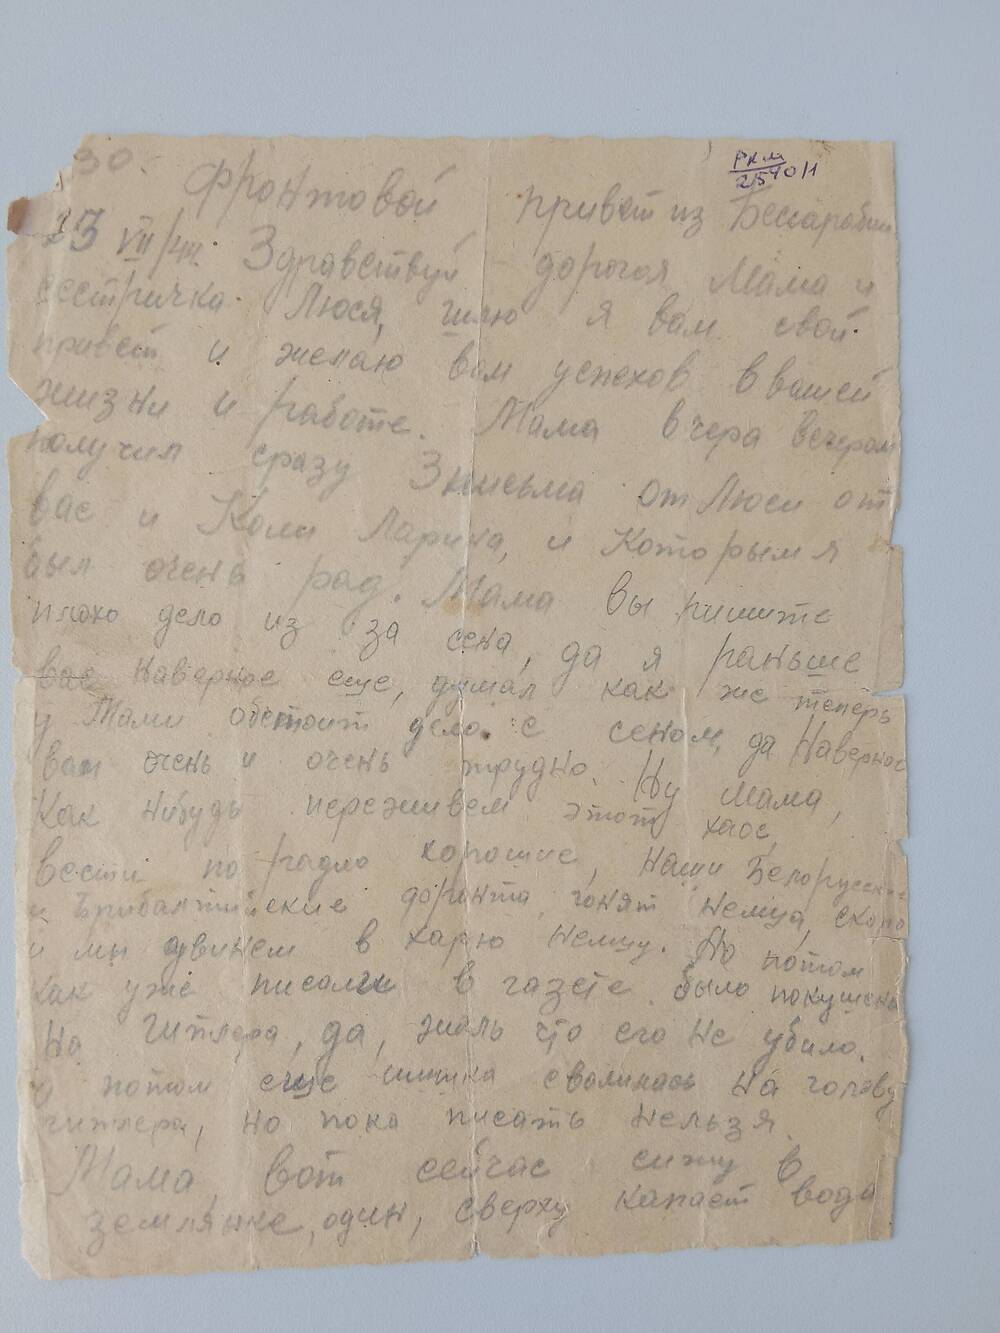 30.
РКМ
2540/1
Фронтовой привет из Бессарабии
23 VII/44. Здравствуй дорогая Мама и
сестричка Люся, шлю я вам свой
привет и желаю вам успехов в вашей
жизни и работе. Мама вчера вечером
получил сразу 3 письма от Люси от
вас и Коли Ларина, и которым я
был очень рад. Мама вы пишите
плохо дело из за сена, да я раньше
вас наверное еще, думал как же теперь
у Мамы обстоит дело с сеном, да наверное
вам очень и очень трудно. Ну Мама,
как нибудь переживем этот хаос,
вести по радио хорошие, наши Белорусские
и Прибалтийские фронта, гонят немца, скоро
и мы двинем в харю немцу. Но потом
как уже писали в газете было покушение
на Гитлера, да, жаль что его не убило.
и потом еще шишка свалилась на голову
гитлера, но пока писать нельзя.
Мама, вот сейчас сижу в
землянке, один, сверху капает вода